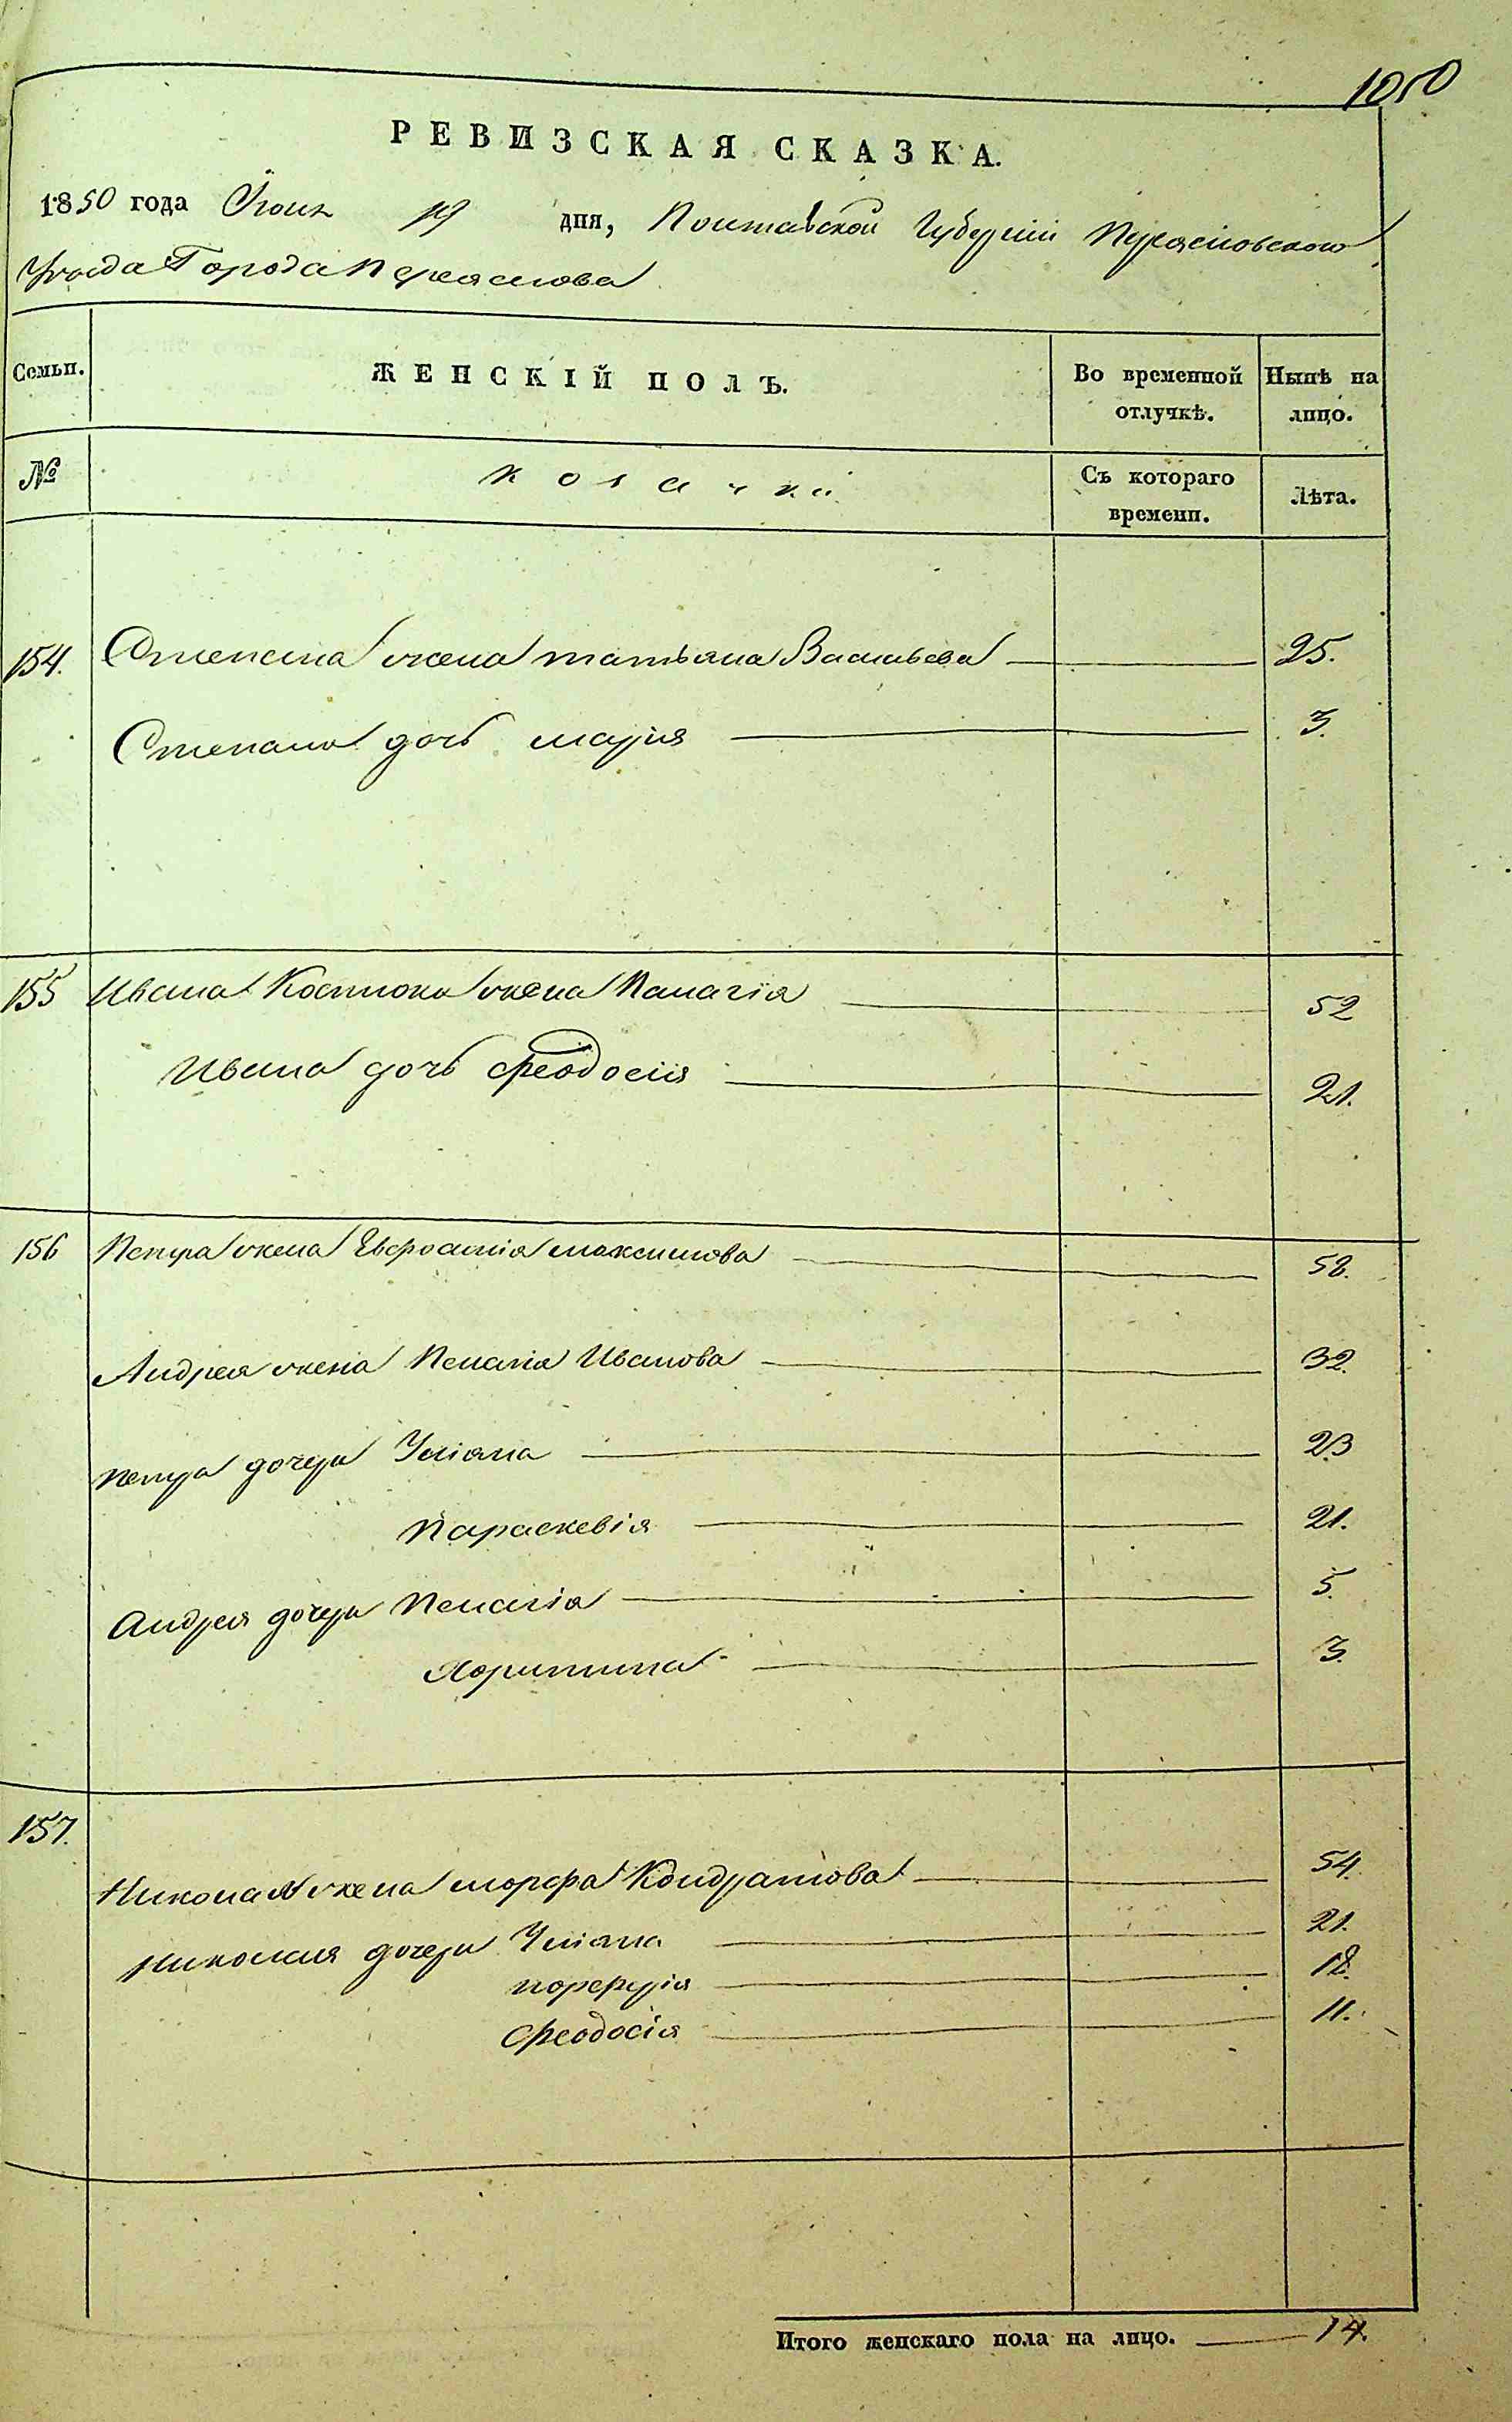 1050
РЕВИЗСКАЯ СКАЗКА.
1850 года Июня 19 дня, Полтавской Губернии Переясловского
Уезда Города Переяслова
Семьи. ЖЕНСКІЙ ПОЛЪ. Во временной отлучкѣ. Нынѣ на лицо.
№ Козачки Съ котораго времени. Лѣта.
154. Степана жена татьяна Васильева 25.
Степана дочь марія 3.
155 Ивана жена Палагія 52
Ивана дочь Феодосія 21.
156 Петра жена Евфросинія максимова 58.
Андрея жена Пелагія Иванова 32.
Петра дочери Уліяна 23
Параскевія 21.
Андрея дочери Пелагія 5.
Харитина 3.
157.
Николая жена марфа Кондратова 54.
Николая дочери Уліяна 21.
порфирія 18.
Феодосія 11.
Итого женскаго пола на лицо. 14.